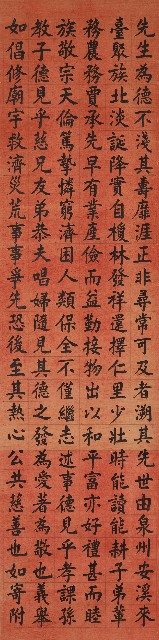 先生為德不淺其壽靡涯正非尋常可及者溯其先世由泉州安溪來
臺聚族北淡誕降實自林發祥還擇仁里少壯時能讀能耕子弟輩
務農務賈承先早有業產儉而益勤接物出以和平富亦好禮甚而睦
族敬宗天倫篤摯憐窮濟困人類保全不僅繼志述事德見乎孝課孫
教子德見乎慈兄友弟恭夫唱婦隨見其德之發為愛者為敬也義舉
如倡修廟宇救濟災荒事事爭先恐後至其熱心公共慈善也如寄附